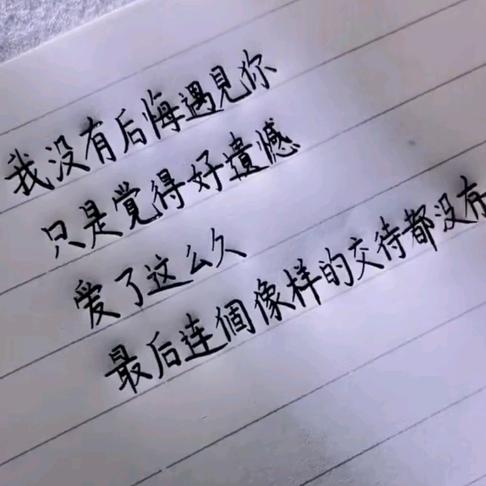 我没有后悔遇見你
只是觉得好遺憾
爱了这么久
最后连個像样的交待都没有